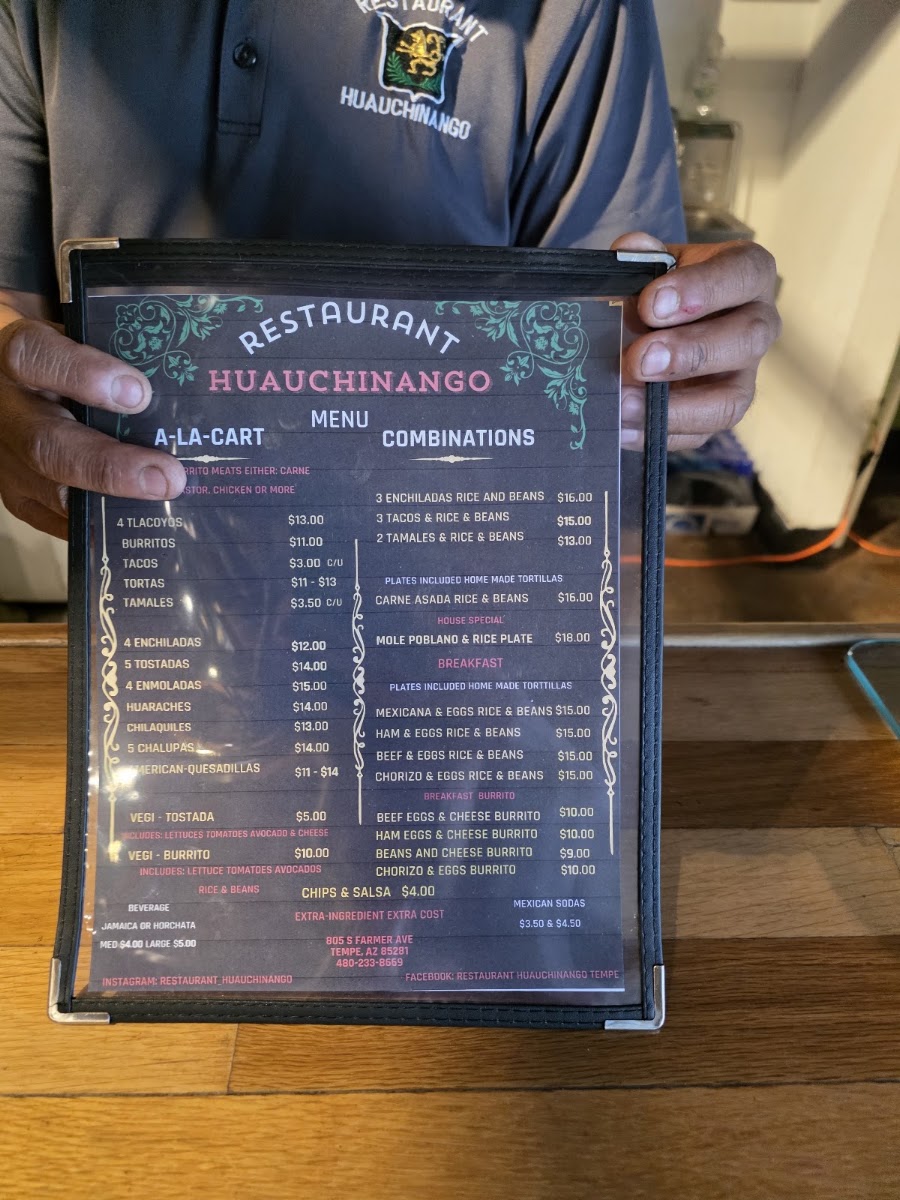 RESTAURANT
HUAUCHINANGO
RESTAURANT
HUAUCHINANGO
MENU
A-LA-CART
MEATS EITHER: CARNE
CHICKEN OR MORE
4 TLACOYOS $13.00
BURRITOS $11.00
TACOS $3.00 C/U
TORTAS $11 - $13
TAMALES $3.50 C/U
4 ENCHILADAS $12.00
5 TOSTADAS $14.00
4 ENMOLADAS $15.00
HUARACHES $14.00
CHILAQUILES $13.00
5 CHALUPAS $14.00
AMERICAN-QUESADILLAS $11 - $14
VEGI - TOSTADA $5.00
INCLUDES: LETTUCES TOMATOES AVOCADO & CHEESE
VEGI - BURRITO $10.00
INCLUDES: LETTUCE TOMATOES AVOCADOS
RICE & BEANS
COMBINATIONS
3 ENCHILADAS RICE AND BEANS $16.00
3 TACOS & RICE & BEANS $15.00
2 TAMALES & RICE & BEANS $13.00
PLATES INCLUDED HOME MADE TORTILLAS
CARNE ASADA RICE & BEANS $16.00
HOUSE SPECIAL
MOLE POBLANO & RICE PLATE $18.00
BREAKFAST
PLATES INCLUDED HOME MADE TORTTILLAS
MEXICANA & EGGS RICE & BEANS $15.00
HAM & EGGS RICE & BEANS $15.00
BEEF & EGGS RICE & BEANS $15.00
CHORIZO & EGGS RICE & BEANS $15.00
BREAKFAST BURRITO
BEEF EGGS & CHEESE BURRITO $10.00
HAM EGGS & CHEESE BURRITO $10.00
BEANS AND CHEESE BURRITO $9.00
CHORIZO & EGGS BURRITO $10.00
CHIPS & SALSA $4.00
BEVERAGE
JAMAICA OR HORCHATA
MED $4.00 LARGE $5.00
EXTRA-INGREDIENT EXTRA COST
MEXICAN SODAS
$3.50 & $4.50
805 S FARMER AVE
TEMPE, AZ 85281
480-233-8669
INSTAGRAM: RESTAURANT_HUAUCHINANGO
FACEBOOK: RESTAURANT HUAUCHINANGO TEMPE